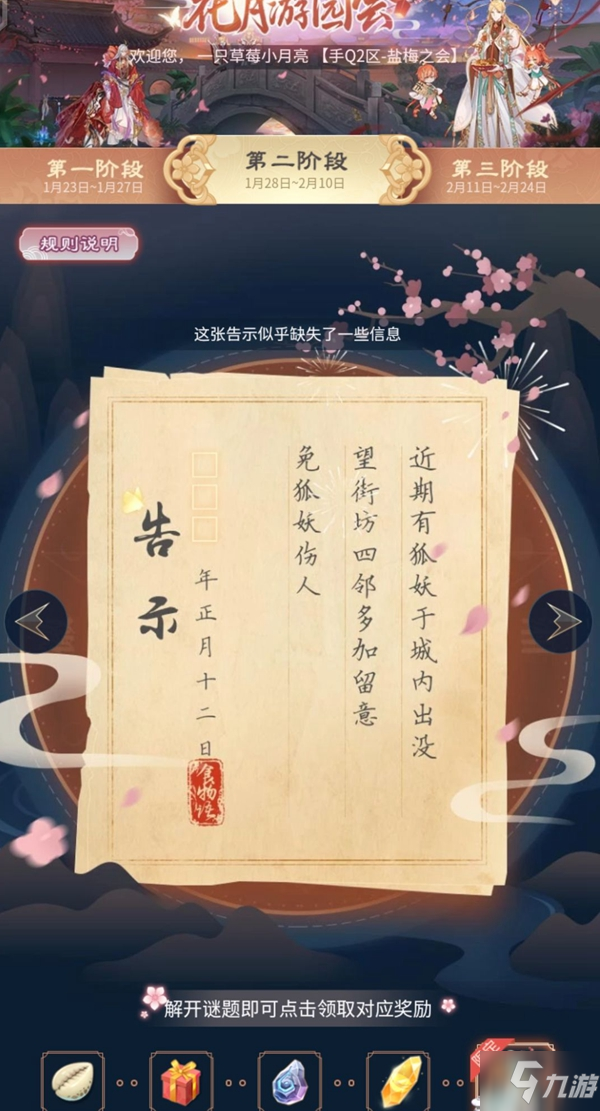 花月游园会
欢迎您， 一只草莓小月亮 【手Q2区-盐梅之会】
第一阶段
1月23日~1月27日
第二阶段
1月28日~2月10日
第三阶段
2月11日~2月24日
规则说明
这张告示似乎缺失了一些信息
近期有狐妖于城内出没
望街坊四邻多加留意
免狐妖伤人
□□□年正月十二日
食物语
告示
解开谜题即可点击领取对应奖励
九游